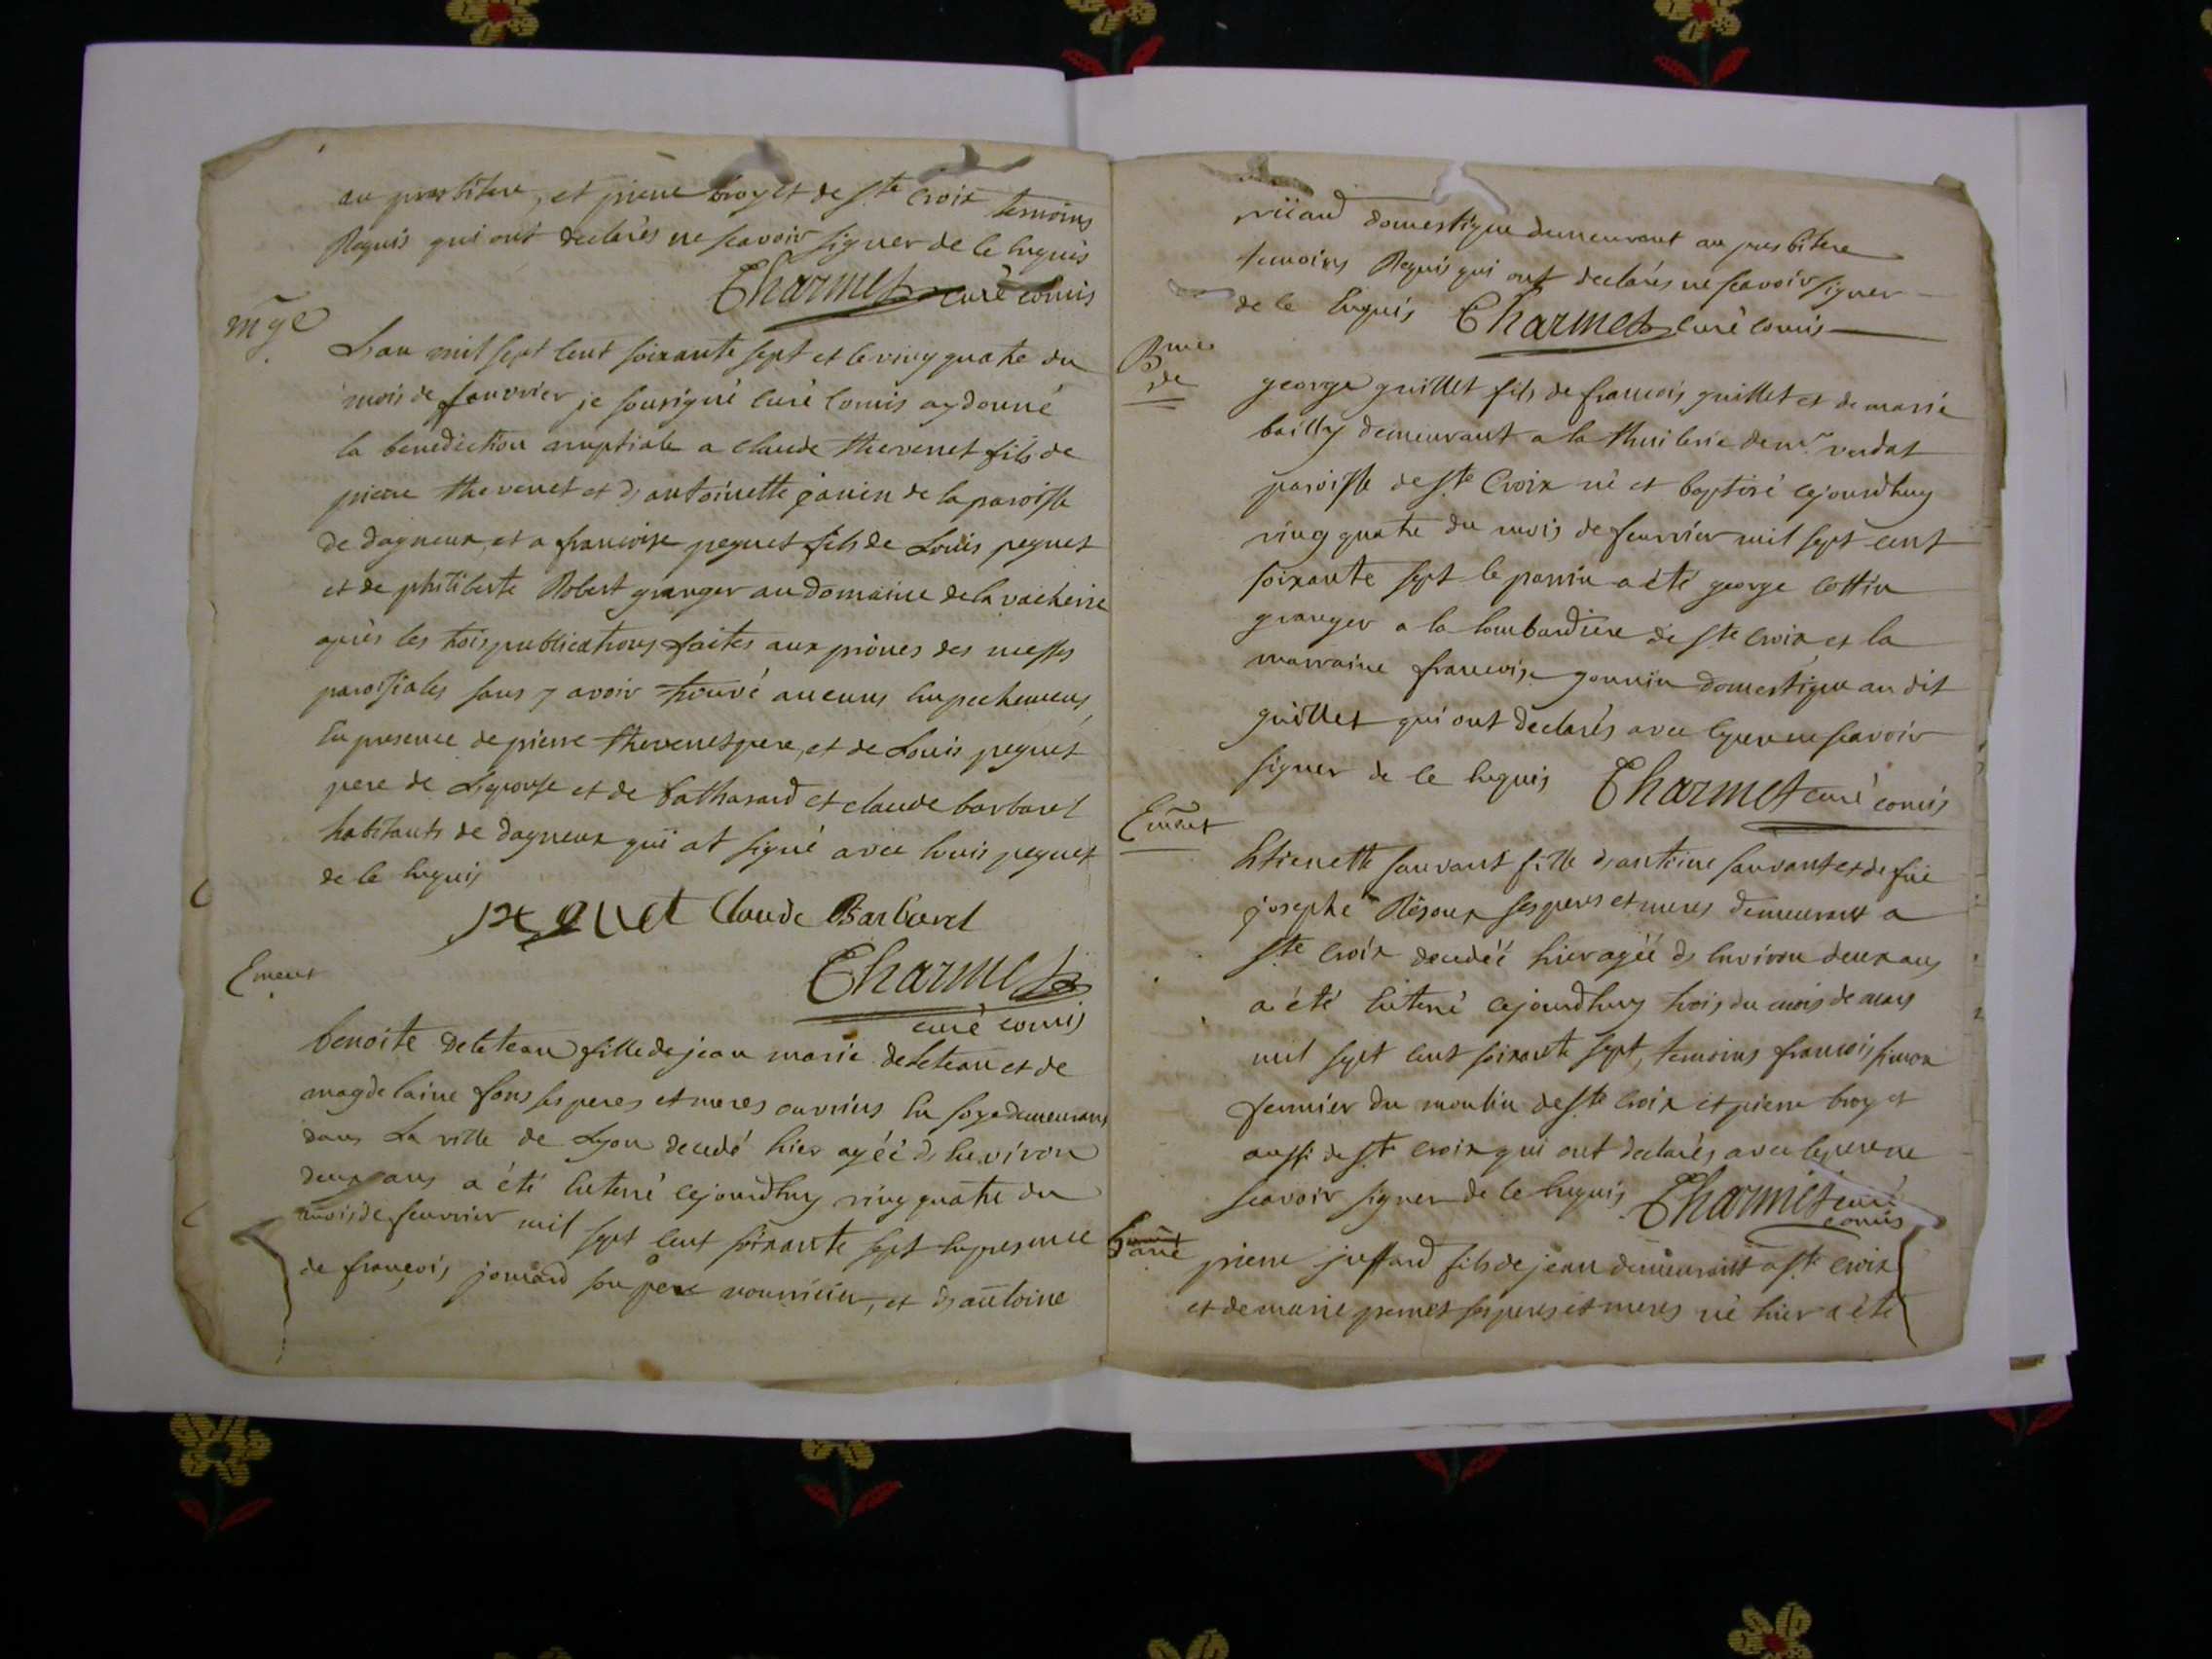 au presbitere, et pierre broyet de Ste Croix temoins
Requis qui ont declarés ne scavoir signer de ce enquis
Charmet curé comis
mge
L'an mil sept cent soixante sept et le ving quatre du
mois de feuvrier je sousigné curé comis ay donné
la benediction nuptiale a claude thevenet fils de
pierre thevenet et d'antoinette janin de la paroisse
de dagneux, et a francoise peguet fils de Louis peguet
et de philiberte Robert granger au domaine de la vacherie
après les trois publications faites aux prônes des messes
paroissiales sans y avoir trouvé aucuns empechemens,
En presence de pierre thevenet pere, et de Louis peguet
pere de L'epouse et de balthasard et claude barbaret
habitants de dagneux qui ont signé avec louis peguet
de ce enquis
peguet Claude Barbaret
Charmet
curé comis
Ement
benoite deleteau fille de jean marie deleteau et de
magdelaine fons ses peres et meres ouvriers En soye demeurans
dans La ville de Lyon decedé hier agéé d'environ
deux ans a été Enterré cejourdhuy ving quatre du
mois de feuvrier mil sept cent soixante sept En presence
de françois jomard son pere nourricier, et d'antoine
domestique demeurant au presbitere
temoins Requis qui ont declarés ne scavoir signer
de ce Enquis Charmet curé comis
Bme
de
george guillet fils de francois guillet et de marie
bailly demeurant a la thuilerie de mr verdat
paroisse de Ste Croix né et baptisé cejourdhuy
ving quatre du mois de feuvrier mil sept cent
soixante sept le parrin a été george cottin
granger a la lombardiere de Ste Croix et la
marraine francoise gonnin domestique au dit
guillet qui ont declarés avec le pere ne scavoir
signer de ce Enquis Charmet curé comis
Ement
Etienette fauvant fille d'antoine fauvant et de fue
josephe ses peres et meres demeurant a
Ste Croix decedéé hier agéé d'Environ deux ans
a été Enterré cejourdhuy trois du mois de mars
mil sept cent soixante sept, temoins francois simon
fermier du moulin de Ste Croix et pierre broyet
aussi de Ste Croix qui ont declarés avec le pere ne
scavoir signer de ce Enquis Charmet curé
comis
pierre juffard fils de jean demeurant a Ste Croix
et de marie pernet ses peres et meres né hier a été